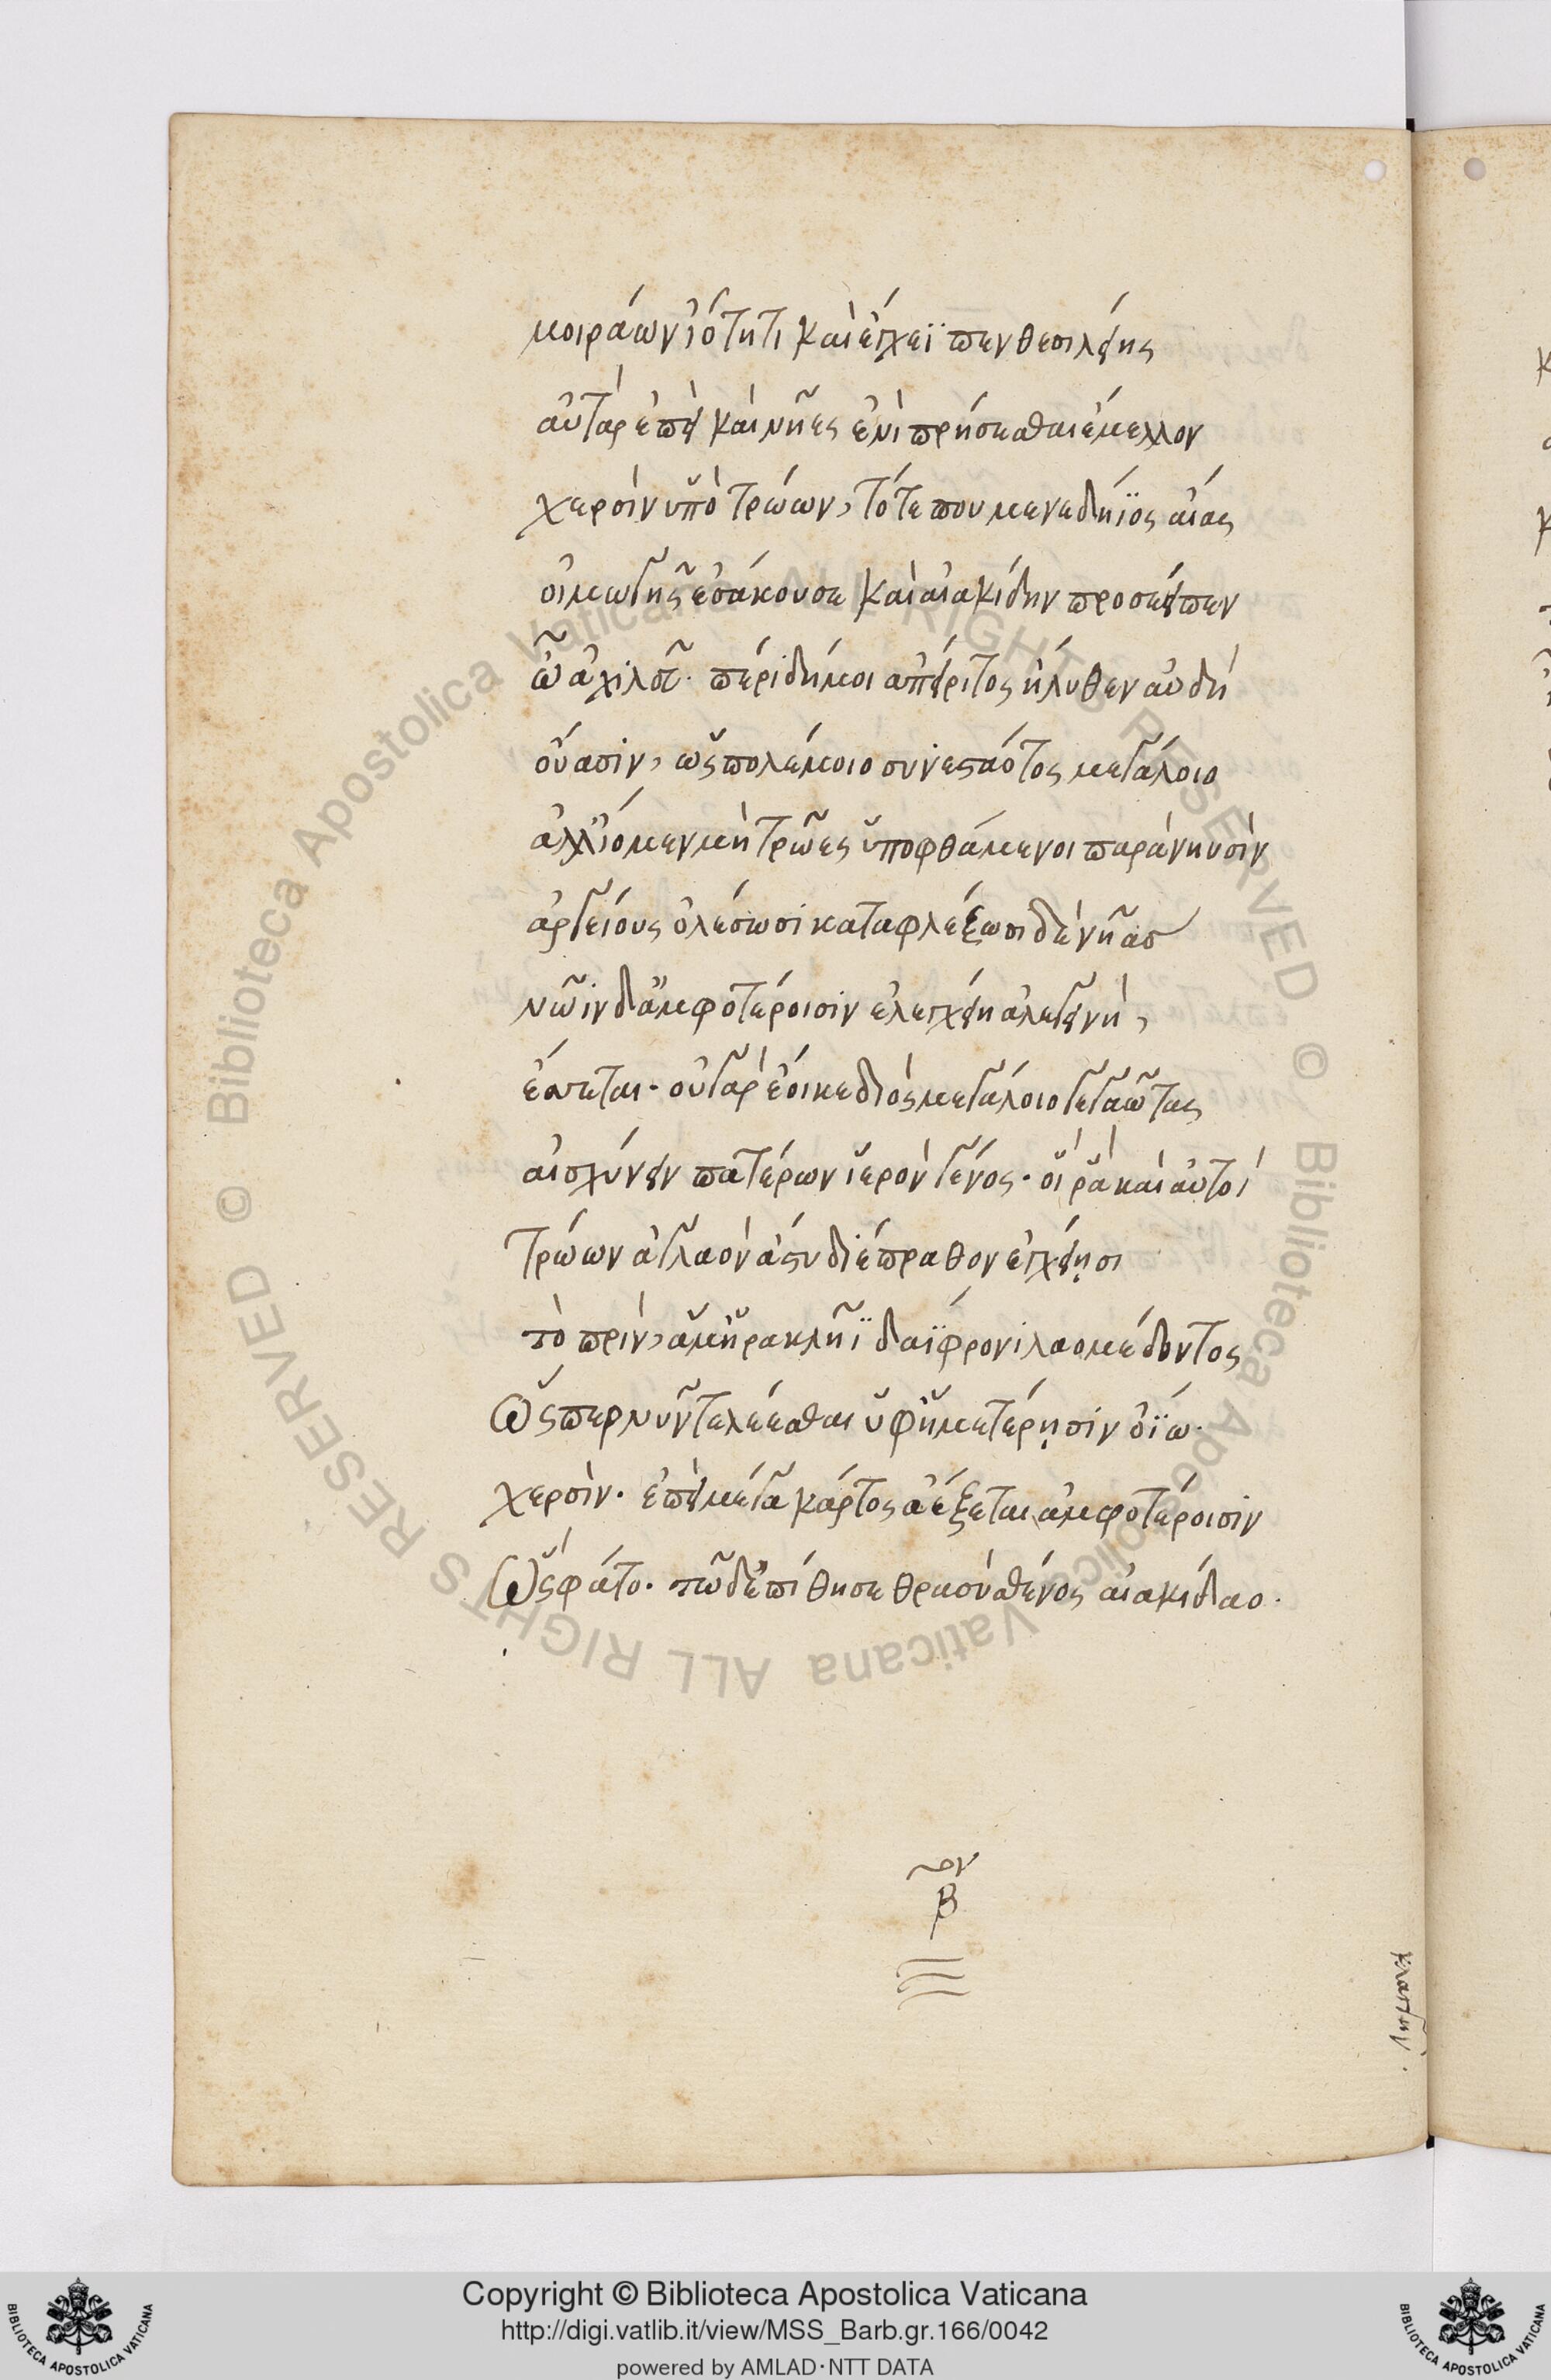 μοιράων ἰότητι καὶ ἔγχεϊ πενθεσιλείης
αὐτὰρ ἐπεὶ καὶ νῆες ἐνιπρήσεσθαι ἔμελλον
χερσὶν ὑπὸ τρώων, τότε που μενεδήϊος αἴας
οἰμωγῆς ἐσάκουσε καὶ αἰακίδην προσέειπεν
ὦ ἀχιλεῦ· πέρι δή μοι ἀπείριτος ἤλυθεν αὐδή
οὔασιν, ὡς πολέμοιο συνεσταότος μεγάλοιο
ἀλλ' ἴομεν μὴ τρῶες ὑποφθάμενοι παρὰ νηυσὶν
ἀργείους ὀλέσωσι καταφλέξωσι δὲ νῆας
νῶϊν δ' ἀμφοτέροισιν ἐλεγχείη ἀλεγεινή,
ἔσσεται· οὐ γὰρ ἔοικε διὸς μεγάλοιο γεγαῶτας
αἰσχύνειν πατέρων ἱερὸν γένος· οἵ ῥα καὶ αὐτοὶ
Τρώων ἀγλαὸν ἄστυ διέπραθον ἐγχείῃσι
τὸ πρίν, ἅμ' ἡρακλῆϊ δαΐφρονι λαομέδοντος
Ὥς περ νῦν τελέεσθαι ὑφ' ἡμετέρῃσιν ὀΐω·
χερσίν· ἐπεὶ μέγα κάρτος ἀέξεται ἀμφοτέροισιν
Ὣς φάτο· τῶ δ' ἐπίθησε θρασὺ σθένος αἰακίδαο·
ον
β
κλαπῆν
Copyright © Biblioteca Apostolica Vaticana
http://digi.vatlib.it/view/MSS_Barb.gr.166/0042
powered by AMLAD·NTT DATA
BIBLIOTECA APOSTOLICA VATICANA
BIBLIOTECA APOSTOLICA VATICANA
© Biblioteca Apostolica Vaticana ALL RIGHTS RESERVED © Biblioteca Apostolica Vaticana ALL RIGHTS RESERVED